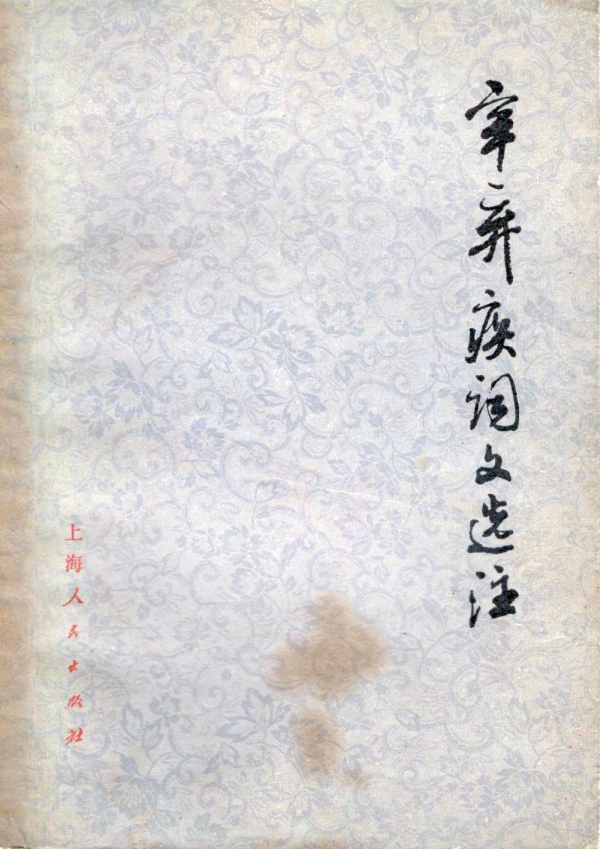 辛弃疾词文选注
上海人民出版社